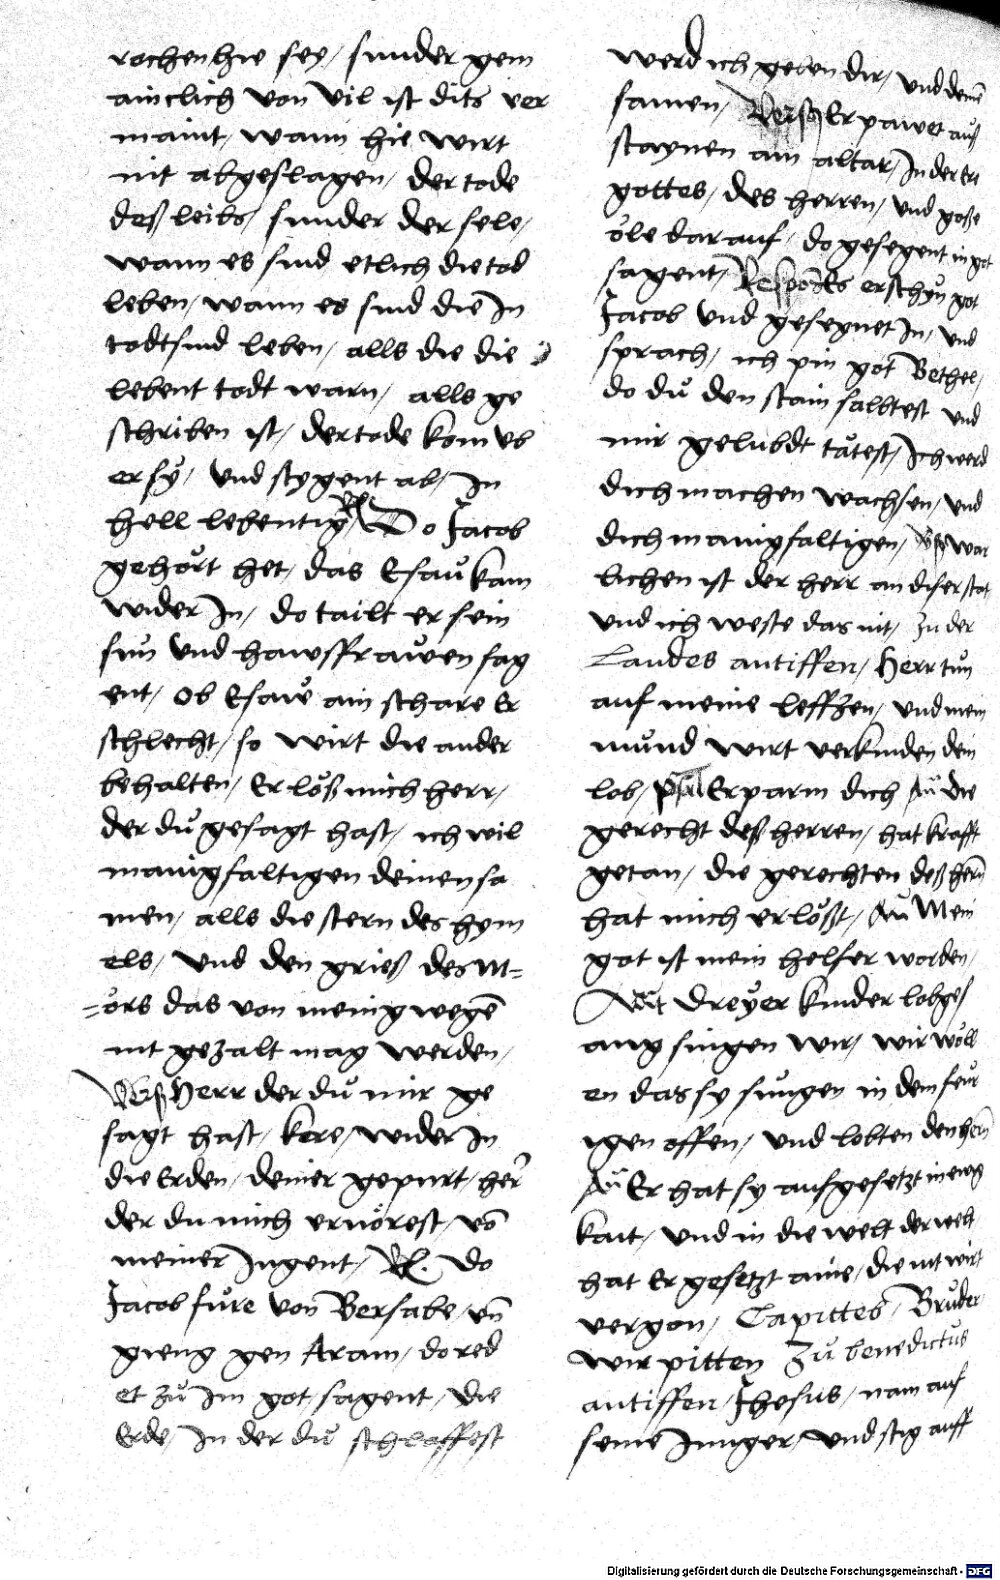 rochen hie sey / sunder gem
ainclich von vil ist dits ver
maint / wann hie wirt
nit abgeslagen / der tode
deß leibs / sunder der sele /
wann es sind etlich die tod
leben / wann es sind die In
todtsind leben / alls die die
lebent todt warn / alls ge
schriben ist / der tode kom vb
er sy / vnd stygent ab / In
hell lebentig / Do Jacob
gehort het / das Esau kam
wider In / do tailt er sein
sun vnd hawsffrawen sag
ent / ob Esawe ain schare Er
schlecht / so wirt die ander
behalten / Erlöß mich herr /
der du gesagt hast / ich wil
manigfaltigen deinen sa
men / alls die stern des hym
els / vnd den grieß des m=
=örs das von menig wegē
nit gezalt mag werden /
Verß Herr der du mir ge
sagt hast / kere / wider In
die Erden / deiner gepurt / her
der du mich ernörest / vō
meiner Jngent / R. Do
Jacob fure von Bersabe / vn̄
gieng gen Aram / do red
et zu Im got sagent / die
Erde / In der du schlaffest
werd ich geben dir / vnd deinē
samen / Verß Er pawet auß
staynen ain altar / In der Ere
gottes / des herren / vnd goße
öle darauf / do gesegent in got
sagent / erschyn got
Jacob vnd gesegnet In / vnd
sprach / ich pin got Bethel /
do du den stain salbtest vnd
mir gelubdt tätest / Ich werd
dich machen wachsen / vnd
dich manigfaltigen / war
lichen ist der herr an diser stat
vnd ich weste das nit / Zu der
Landes antiffen / Herr tun
auf meine leffzen / vnd mein
mund wirt verkunden dein
lob / Erparm dich die
gerecht deß herren / hat krafft
getan / die gerechten deß herrn
hat mich erlößt / Mein
got ist mein helfer worden /
dreyer kinder lobges
ang singen wir / wir wöll
en das sy sungen in dem feur
igen offen / vnd lobten den herrn
Er hat sy aufgesetzt in ewig
kait / vnd in die welt der welt
hat Er gesetzt aine / die nit wirt
vergon / Capittes / Bruder
wir pitten Zu benedictus
antiffen / Jhesus / nam auf
seine Junger / vnd stig auff
Digitalisierung gefördert durch die Deutsche Forschungsgemeinschaft - DFG